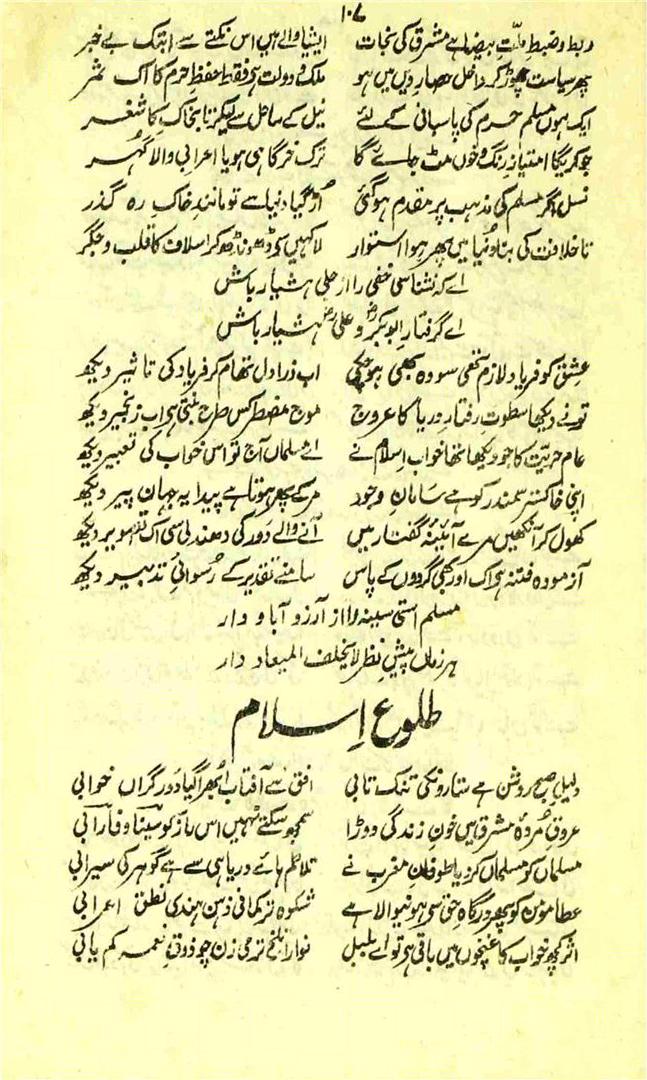 ۱۰۷
ربط و ضبطِ ملّتِ بیضا ہے مشرق کی نجات ایشیا والے ہیں اس نکتے سے ابتک بے خبر
پھر سیاست چھوڑ کر داخل حصارِ دیں میں ہو ملک و دولت ہے فقط حفظِ حرم کا اک ثمر
ایک ہوں مسلم حرم کی پاسبانی کے لئے نیل کے ساحل سے لیکر تا بخاکِ کاشغر
جو کریگا امتیازِ رنگ و خوں مٹ جائے گا ترک خرگاہی ہو یا اعرابی والا گہر
نسل اگر مسلم کی مذہب پر مقدم ہو گئی اڑ گیا دنیا سے تو مانندِ خاکِ رہ گذر
تا خلافت کی بنا دنیا میں ہو پھر استوار لا کہیں سے ڈھونڈھ کر اسلاف کا قلب و جگر
اے کہ نشناسی خفی را از جلی ہشیار باش
اے گرفتارِ ابوبکرؓ و علیؓ ہشیار باش
عشق کو فریاد لازم تھی سو وہ بھی ہو چکی اب ذرا دل تھام کر فریاد کی تاثیر دیکھ
تو نے دیکھا سطوتِ رفتارِ دریا کا عروج موجِ مضطر کس طرح بنتی ہے اب زنجیر دیکھ
عام حریت کا جو دیکھا تھا خواب اسلام نے اے مسلماں آج تو اس خواب کی تعبیر دیکھ
اپنی خاکستر سمندر کو ہے سامانِ وجود مر کے پھر ہوتا ہے پیدا یہ جہانِ پیر دیکھ
کھول کر آنکھیں مرے آئینۂ گفتار میں آنے والے دور کی دھندلی سی اک تصویر دیکھ
آزمودہ فتنہ ہے اک اور بھی گردوں کے پاس سامنے تقدیر کے رسوائیِ تدبیر دیکھ
مسلم استی سینہ را از آرزو آباد دار
ہر زماں پیشِ نظر لا یخلف المیعاد دار
طلوعِ اسلام
دلیلِ صبحِ روشن ہے ستارونکی تنک تابی افق سے آفتاب ابھرا گیا دورِ گراں خوابی
عروقِ مردۂ مشرق میں خونِ زندگی دوڑا سمجھ سکتے نہیں اس راز کو سینا و فارابی
مسلماں کو مسلماں کر دیا طوفانِ مغرب نے تلاطم ہائے دریا ہی سے ہے گوہر کی سیرابی
عطا مومن کو پھر درگاہِ حق سے ہونیوالا ہے شکوہِ ترکمانی ذہنِ ہندی نطقِ اعرابی
اثر کچھ خواب کا غنچوں میں باقی ہے تو اے بلبل نوارا تلخ تر می زن چو ذوقِ نغمہ کم یابی